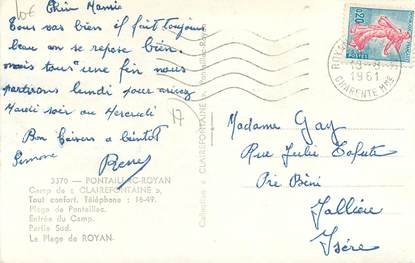 10€
Chère Mamie
Tous vas bien il fait toujours
beau an se repose bien.
mais tous a une fin nous
partirons lundi pour arriver
Mardi soir ou Mercredi
Bon Baisers a bientôt
Simone
René
17
3370 — PONTAILLAC-ROYAN
Camp de « CLAIREFONTAINE »,
Tout confort. Téléphone : 16-49.
Plage de Pontaillac.
Entrée du Camp.
Partie Sud.
La Plage de ROYAN.
Collection « CLAIREFONTAINE » Pontaillac-Royan
0,20
ROYAN
1961
CHARENTE MME
Madame Gay
Rue Julie
Pré Béni
Isère